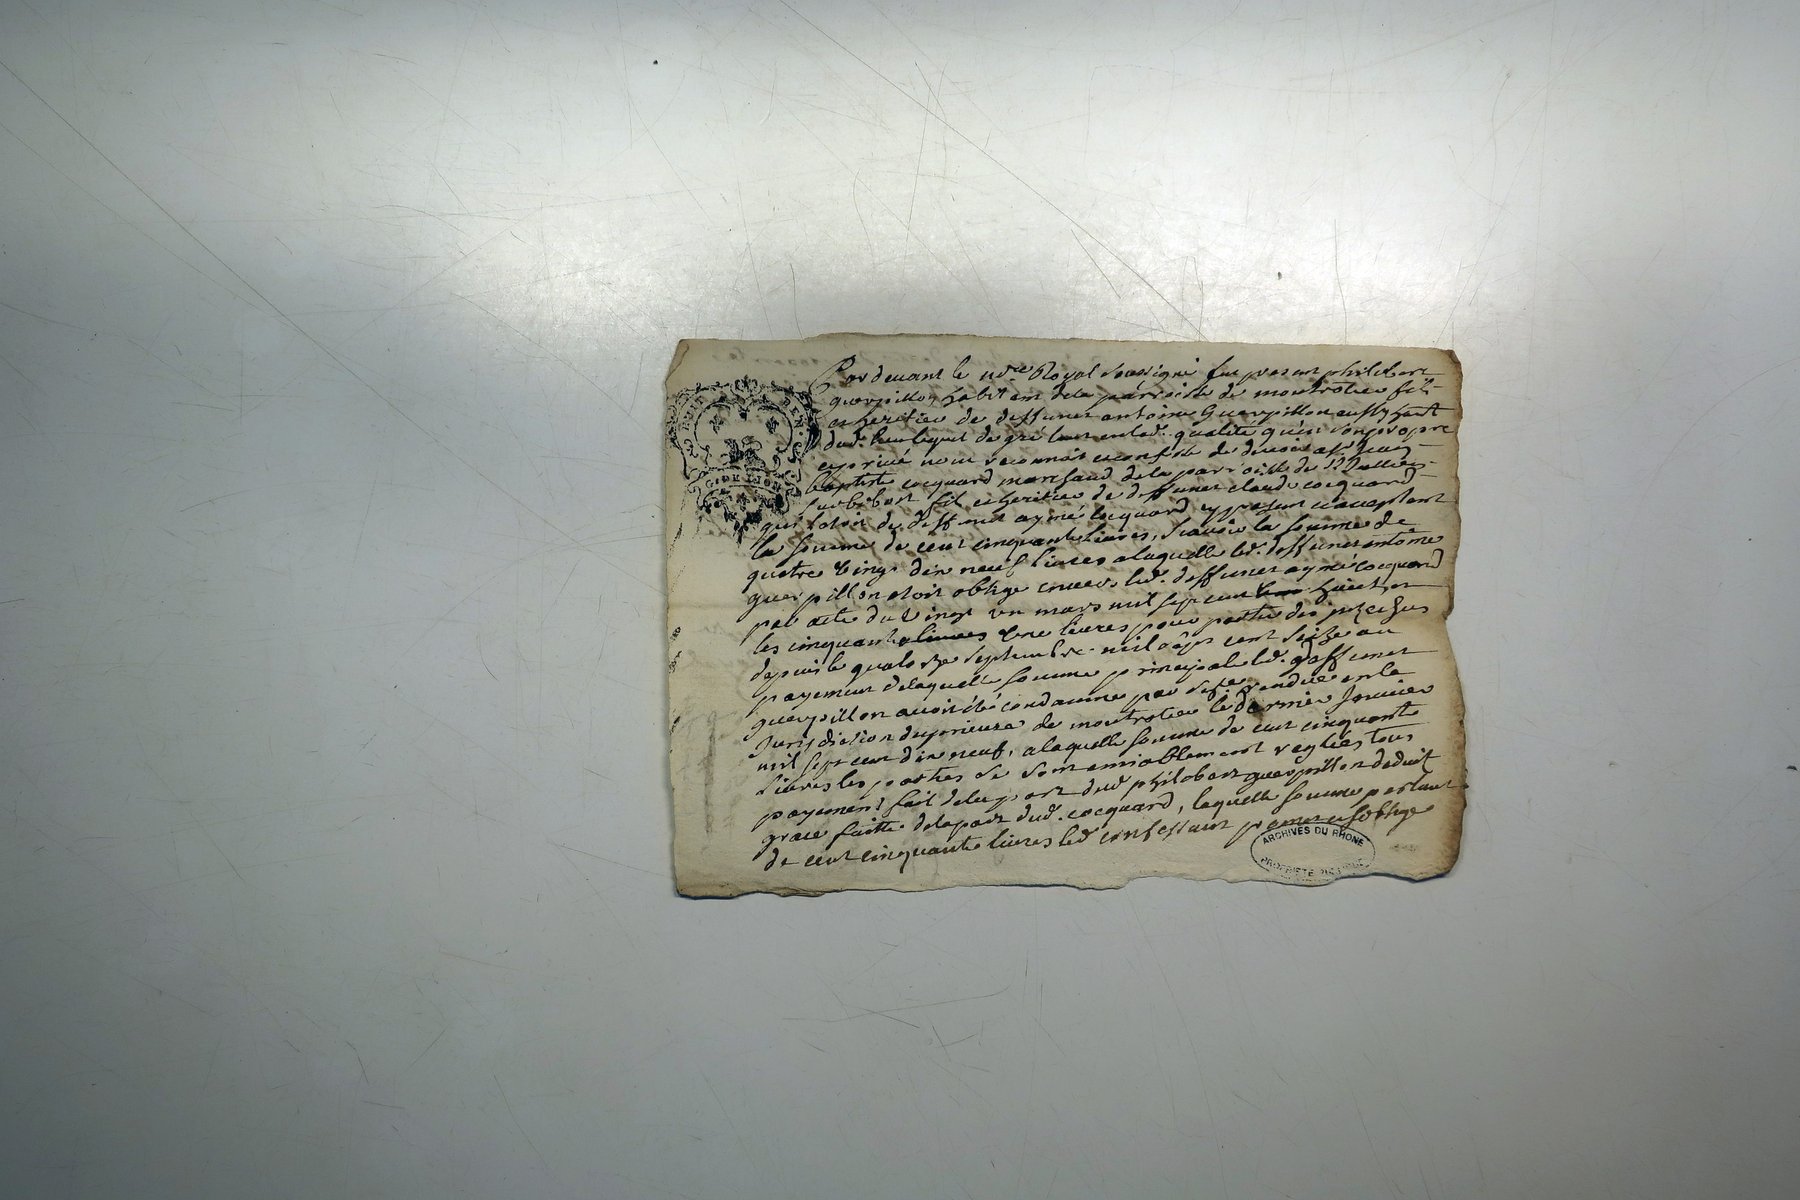 Par devant le nore Royal soussigné fut present philibert
querpillon habitant de la parroisse de montrotier fils
et heritier de deffunct antoine Querpillon aussy habt
dud. lieu lequel de gré tant en lad. qualité qu'en son propre
et privé nom reconnoit et confesse de devoir a Sr Jean
Baptiste cocquard marchand de la parroisse de St
sur bibost fils et heritier de deffunct claude cocquard
qui l'etoit de deffunct aymé cocquard, cy present et acceptant
la somme de cent cinquante livres, scavoir la somme de
quatre vingt dix neuf livres a laquelle led. deffunct antoine
querpillon etoit obligé envers led. deffunct aymé cocquard
par acte du vingt un mars mil sept cent huict, et
les cinquante une livres pour partie des interets
depuis le quatorze septembre mil sept cent seize au
payement de laquelle somme principale led. deffunct
querpillon avoit été condamné par sentence rendüe en la
Jurisdiction de montrotier le dernier Janvier
mil sept cent dix neuf, a laquelle somme de cent cinquante
livres les parties se sont amiablement reglées tous
payements fait de la part dud. philibert querpillon deduit
grace faitte de la part dud. cocquard, laquelle somme
de cent cinquante livres led. confessant promet et s'oblige
GE DE LION
ARCHIVES DU RHONE
PROPRIETE